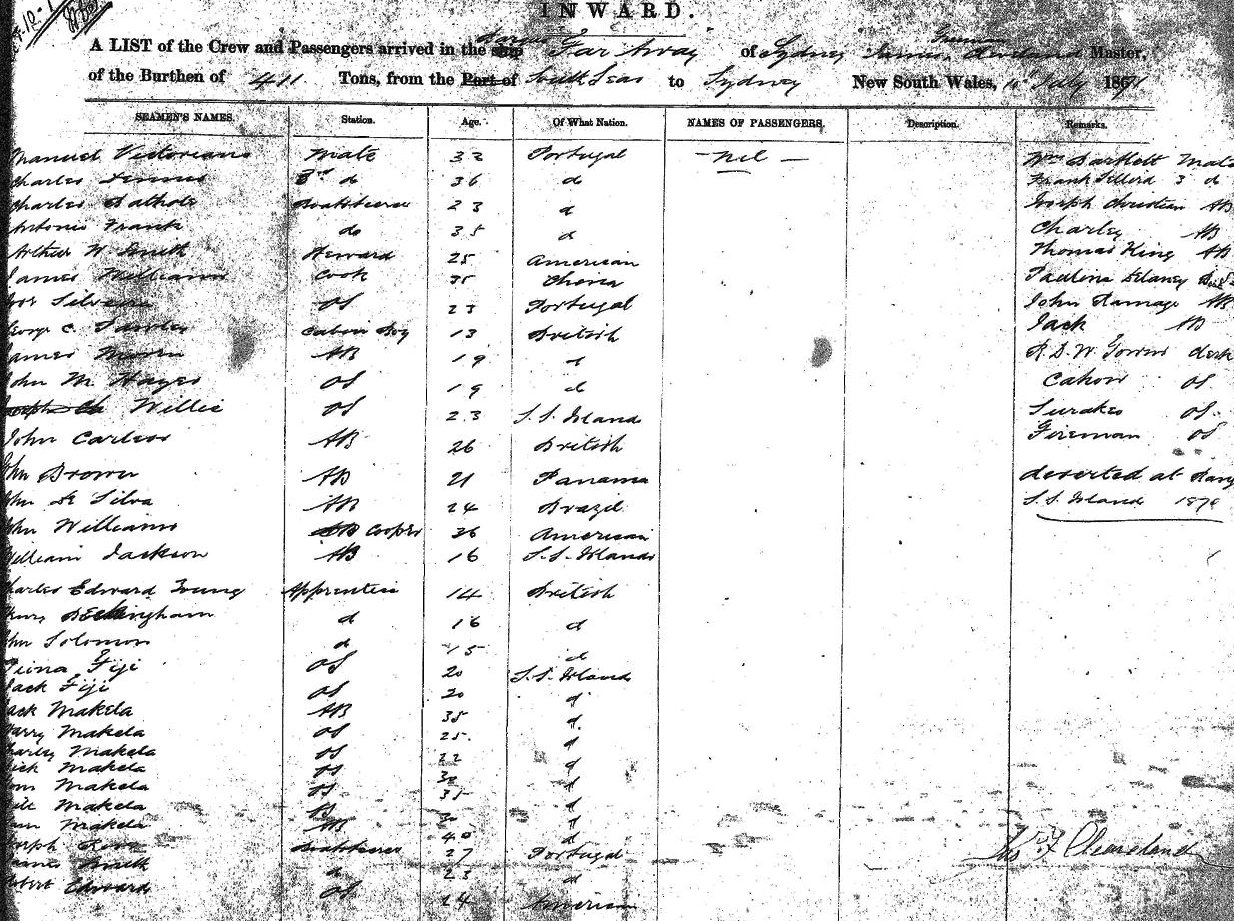 INWARD.
A LIST of the Crew and Passengers arrived in the ship Barque Far Away of Sydney Cleveland Master,
of the Burthen of 411 Tons, from the Port of South Seas to Sydney New South Wales, July 1871
SEAMEN'S NAMES. Station. Age. Of What Nation. NAMES OF PASSENGERS. Description. Remarks.
Manuel Victoriano Mate 32 Portugal - nil - Wm Bartlett Mate
Charles d 36 d Frank 3 d
Charles Boatsteerer 23 d Joseph Christian AB
Antonio Frank do 35 d Charley AB
Arthur W Smith Steward 25 American Thomas King AB
James Williams Cook 35 China Delaney
Silveira OS 23 Portugal John Ramage AB
George C. Cabin Boy 13 British Jack AB
James AB 19 d R. D. W.
John M. Hayes OS 19 d Cahow OS
Willis OS 23 S. S. Island OS
John Carlson AB 26 British Fireman OS
John Brown AB 21 Panama deserted at
John De Silva AB 24 Brazil S. S. Island 1870
John Williams Cooper 36 American
William Jackson AB 16 S. S. Islands
Charles Edward Young Apprentice 14 British
Beckingham d 16 d
John Solomon d 15 d
Fiji OS 20 S. S. Island
Jack Fiji OS 20 d
Jack Makela AB 35 d
Harry Makela OS 25 d
Charley Makela OS 22 d
Dick Makela OS 30 d
Tom Makela OS 35 d
Makela 30 d
Makela AB 40 d
Joseph Boatsteerer 27 Portugal
Smith d 23 d
Robert Edward OS 24 American
Cleveland